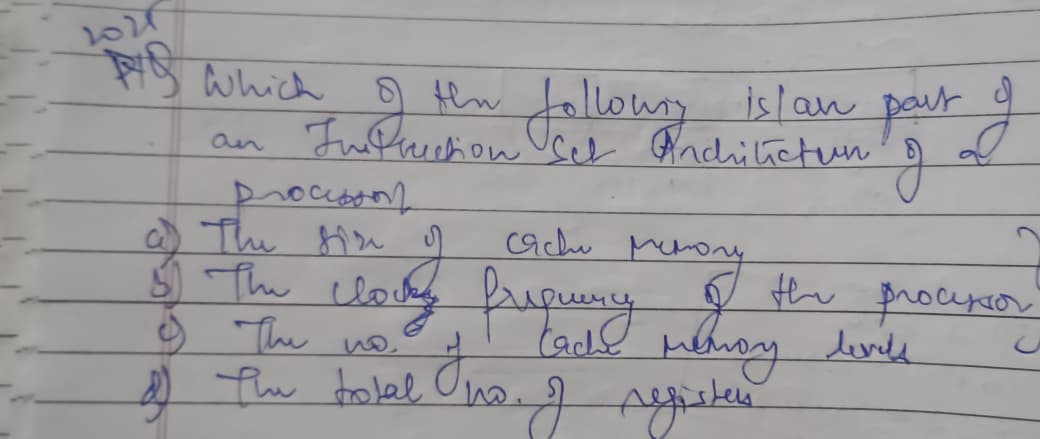 Which of the following is/are part of
an Instruction Set Architecture of a
processor
a) The size of cache memory
b) The clock frequency of the processor
c) The no. of cache memory levels
d) The total no. of registers